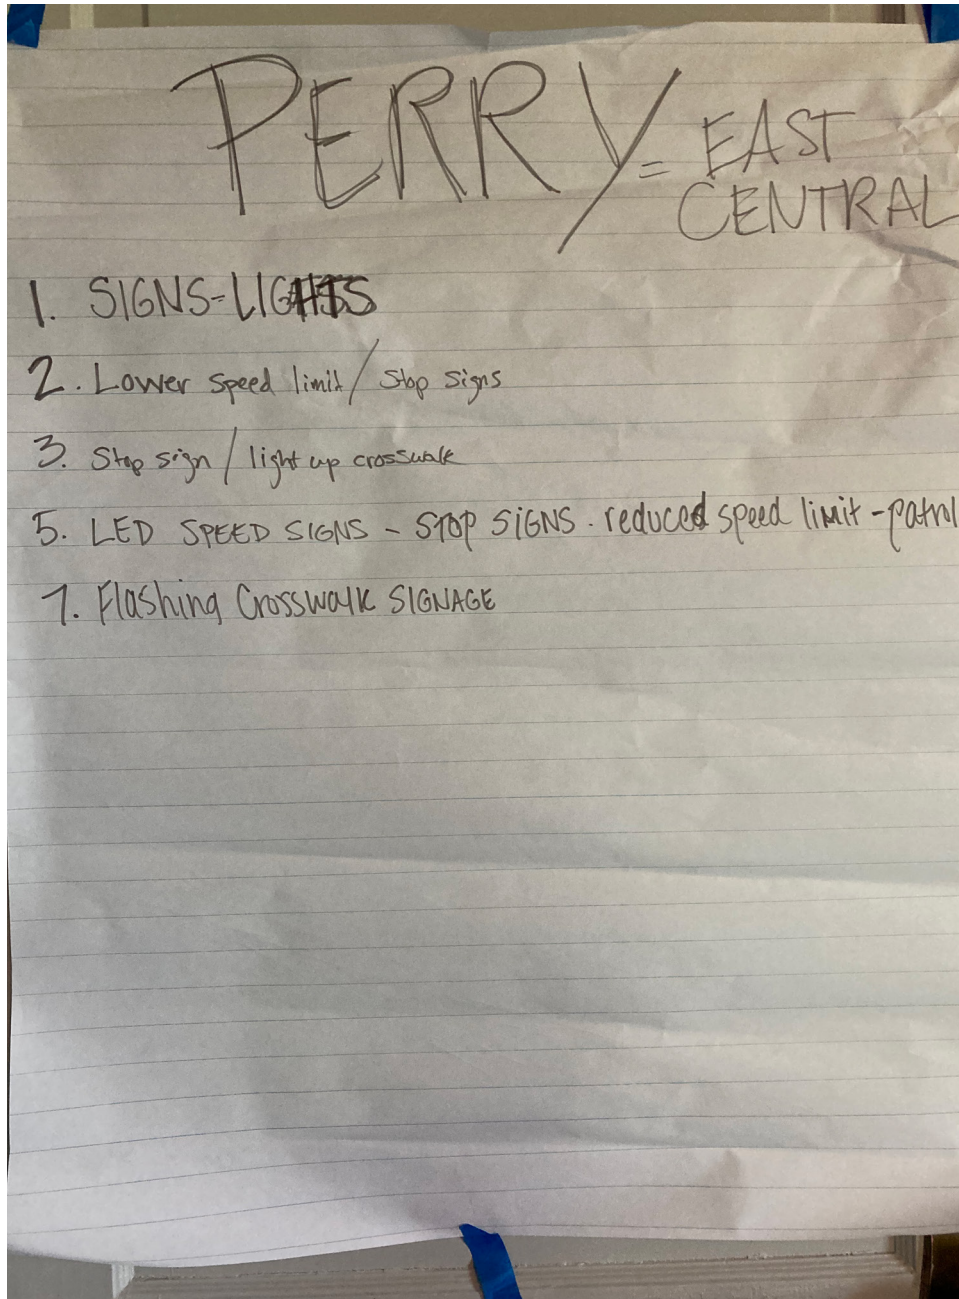 PERRY = EAST
CENTRAL
1. SIGNS-LIGHTS
2. Lower speed limit / stop signs
3. Stop sign / light up crosswalk
5. LED SPEED SIGNS - STOP SIGNS. reduced speed limit - patrol
7. Flashing Crosswalk SIGNAGE